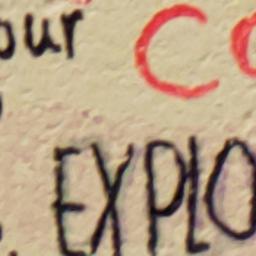 our CO
EXPLO